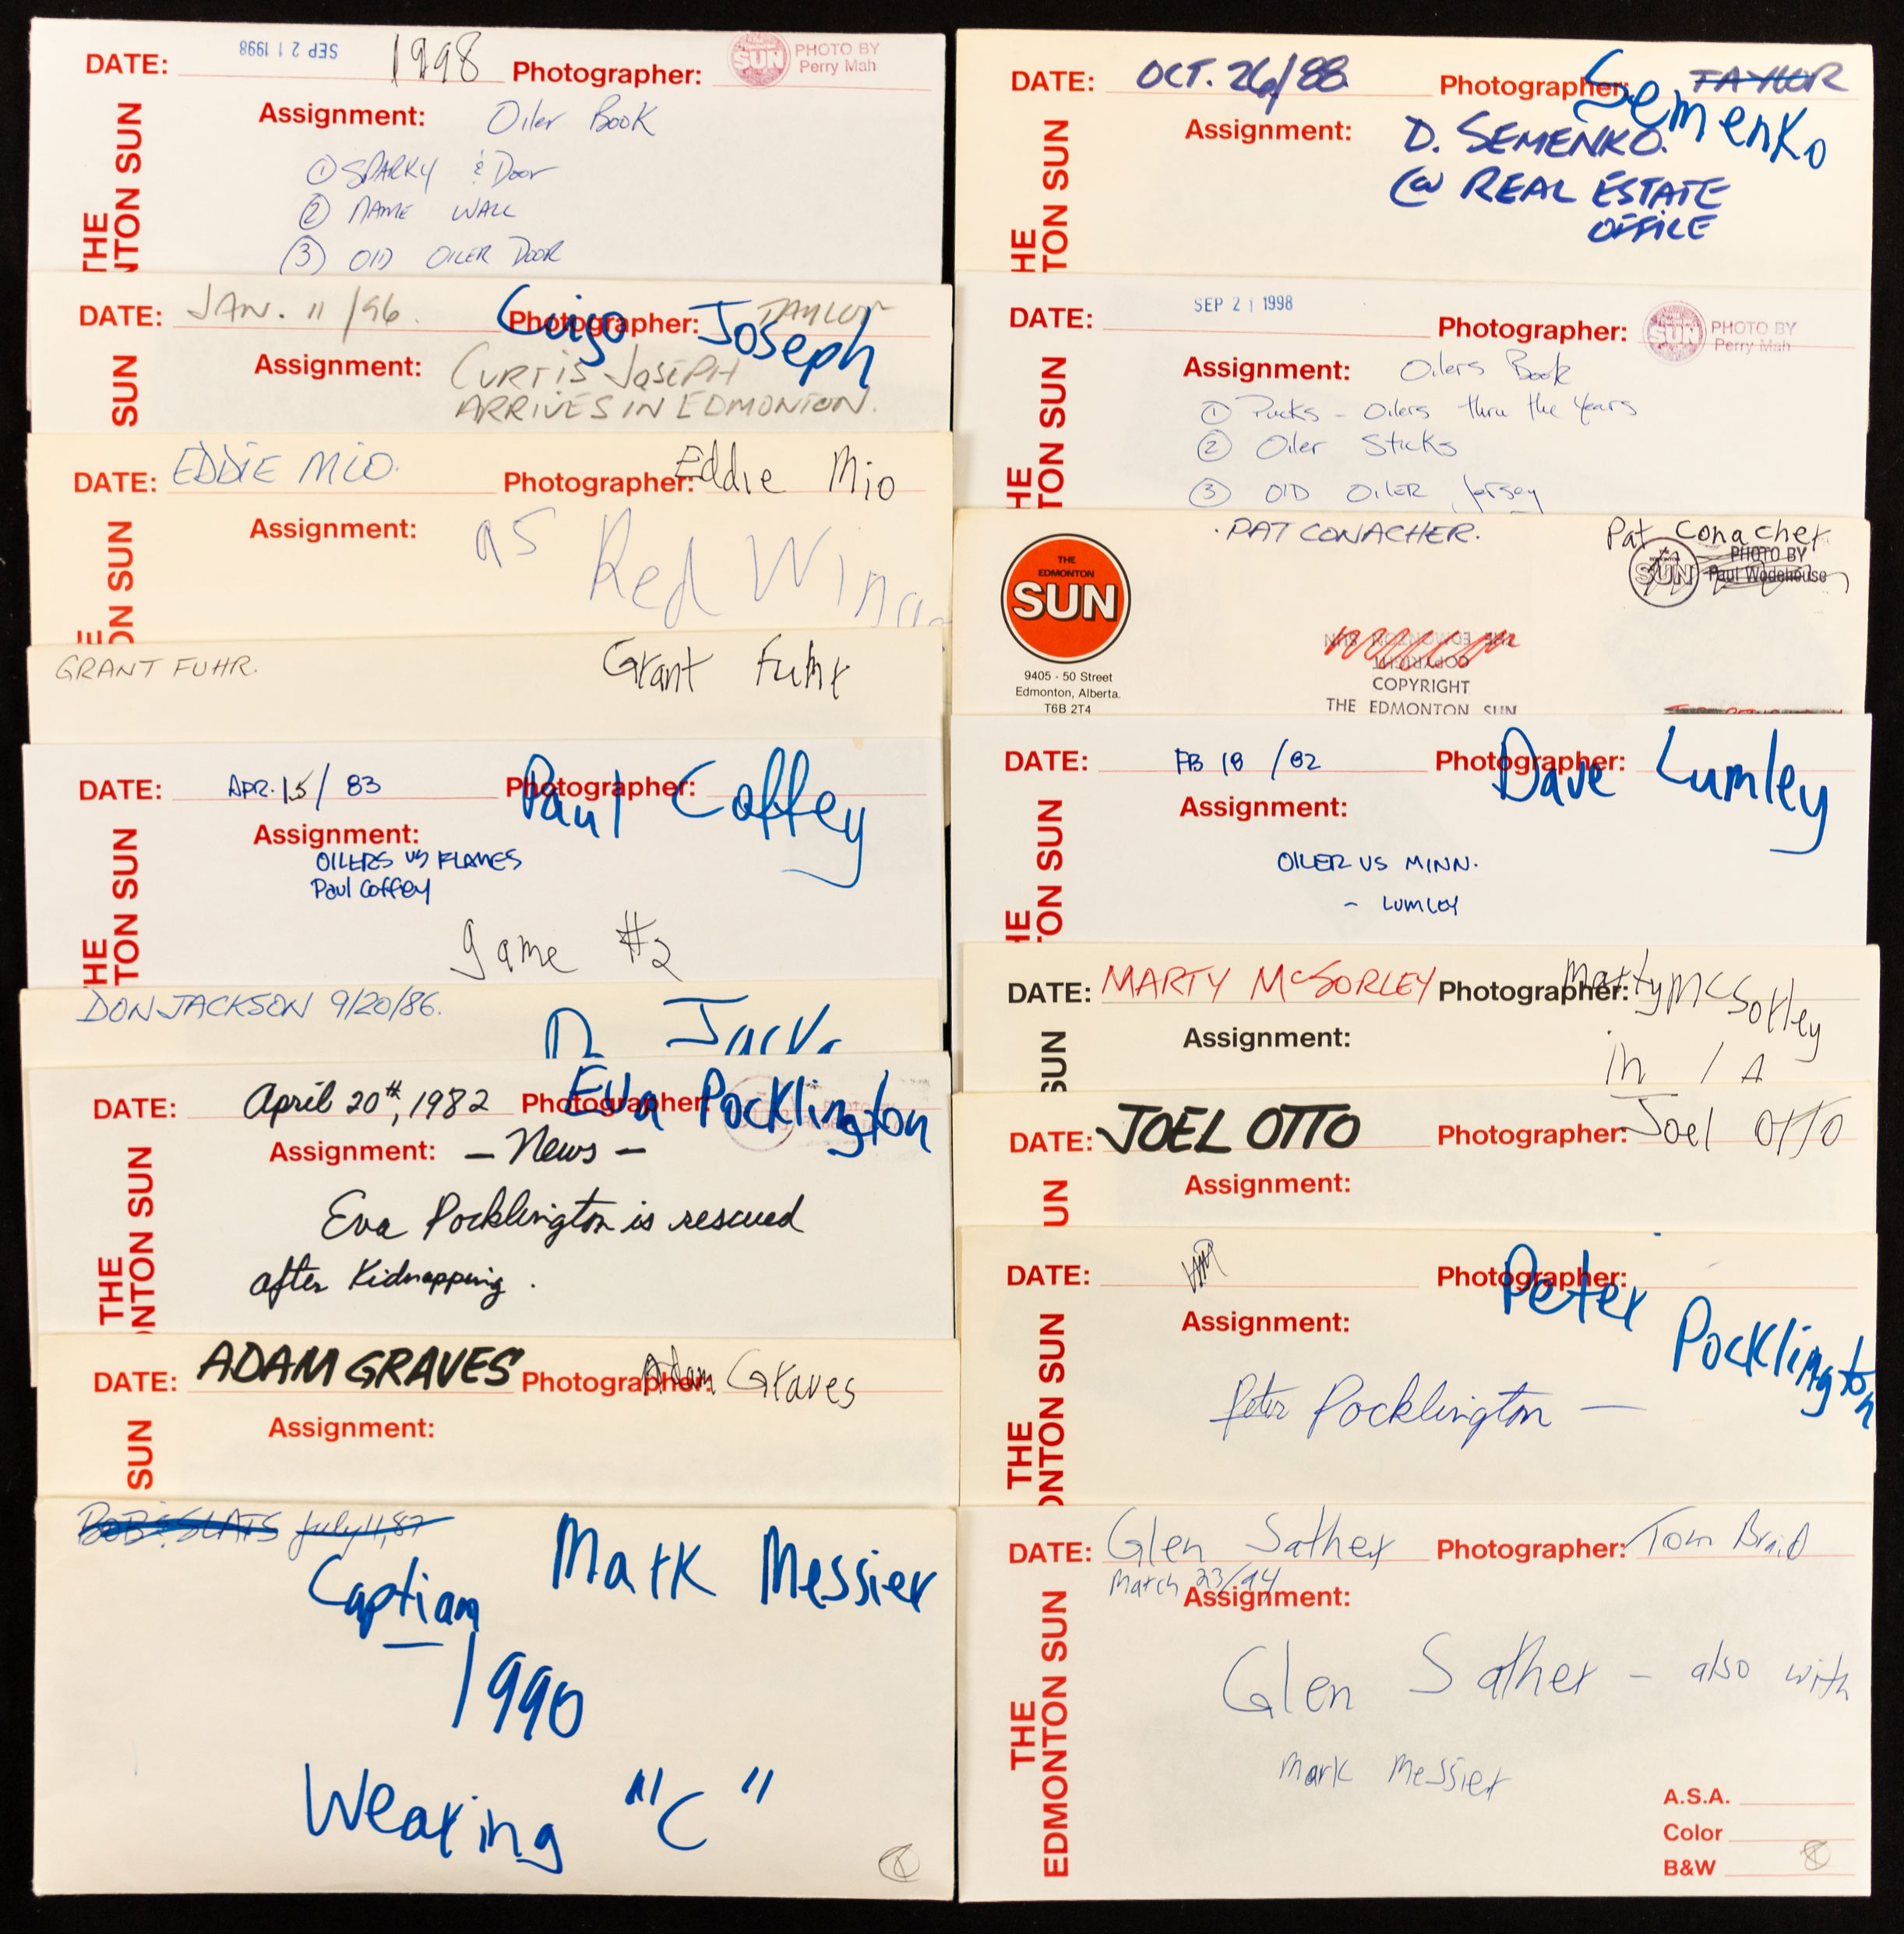 DATE: SEP 21 1998 1998 Photographer: SUN PHOTO BY
Perry Mah
Assignment: Oiler Book
① SPARKY & Door
② NAME WALL
③ Old OILER DOOR
THE
NTON SUN
DATE: JAN. 11/96. Photographer: TAYLOR
Cujo Joseph
Assignment: CURTIS JOSEPH
ARRIVES IN EDMONTON.
SUN
DATE: EDDIE MIO. Photographer: Eddie Mio
Assignment: as Red Wing
ON SUN
GRANT FUHR. Grant Fuhr
DATE: APR. 15/83 Photographer: Paul Coffey
Assignment:
OILERS VS FLAMES
Paul Coffey
game #2
THE
TON SUN
DON JACKSON 9/20/86.
DATE: April 20th, 1982 Photographer: Eva Pocklington
Assignment: – News –
Eva Pocklington is rescued
after Kidnapping.
THE
NTON SUN
DATE: ADAM GRAVES Photographer: Adam Graves
Assignment:
SUN
BOB & SLATS July 11, 87
Mark Messier
Captian
1990
Wearing "C"
DATE: OCT. 26/88 Photographer: TAYLOR
Semenko
Assignment: D. SEMENKO.
@ REAL ESTATE
OFFICE
HE
TON SUN
DATE: SEP 21 1998 Photographer: SUN PHOTO BY
Perry Mah
Assignment: Oilers Book
① Pucks - Oilers thru the Years
② Oiler Sticks
③ Old OILER Jersey
THE
TON SUN
PAT CONACHER. Pat Conacher
THE
EDMONTON
SUN
SUN PHOTO BY
Paul Wodehouse
9405 - 50 Street
Edmonton, Alberta.
T6B 2T4
THE EDMONTON SUN
COPYRIGHT
COPYRIGHT
THE EDMONTON SUN
DATE: FB 18 /82 Photographer: Dave Lumley
Assignment:
OILER VS MINN.
- LUMLEY
HE
TON SUN
DATE: MARTY McSORLEY Photographer: Marty McSorley
Assignment: in LA
SUN
DATE: JOEL OTTO Photographer: Joel Otto
Assignment:
UN
DATE: Photographer: Peter
Pocklington
Assignment:
Peter Pocklington —
THE
ONTON SUN
DATE: Glen Sather Photographer: Tom Braid
March 23/94
Assignment:
Glen Sather - also with
Mark Messier
THE
EDMONTON SUN
A.S.A.
Color
B&W